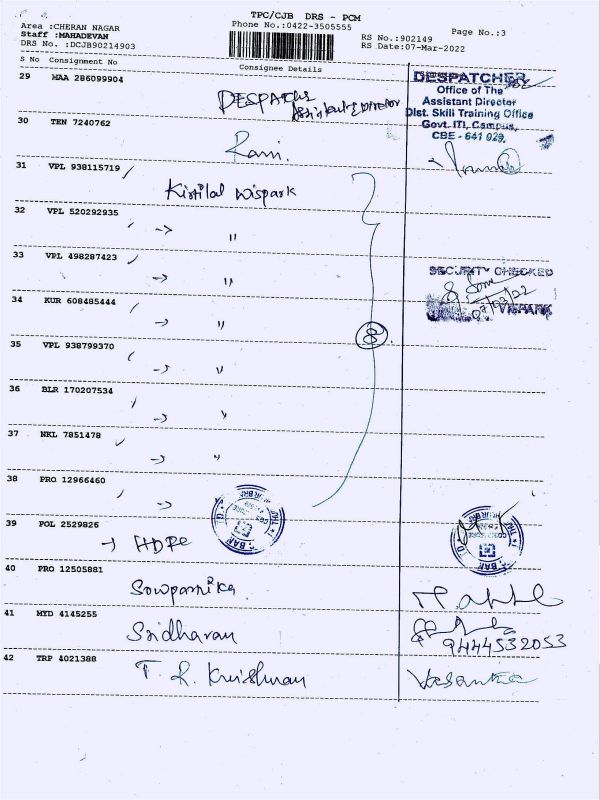 TPC/CJB DRS - PCM
Area :CHERAN NAGAR
Phone No.:0422-3505555
Page No.:3
Staff :MAHADEVAN
RS No.:902149
DRS No. :DCJB90214903
RS Date:07-Mar-2022
S No Consignment No
Consignee Details
29 MAA 286099904
DESPATCHER
Office of The
Assistant Director
Dist. Skill Training Office
Govt. ITI, Campus,
CBE - 641 029.
30 TEN 7240762
Ravi.
31 VPL 938115719
Kirtilal Wispark
32 VPL 520292935
-> "
33 VPL 498287423
-> "
SECURITY CHECKED
07/03/22
34 KUR 608485444
-> "
8
35 VPL 938799370
-> "
36 BLR 170207534
-> "
37 NKL 7851478
-> "
38 PRO 12966460
->
39 POL 2529826
-> HDFC
40 PRO 12505881
Sowparnika
41 MYD 4145255
Sridharan
9444532053
42 TRP 4021388
T. R. Krishnan
Vasantha